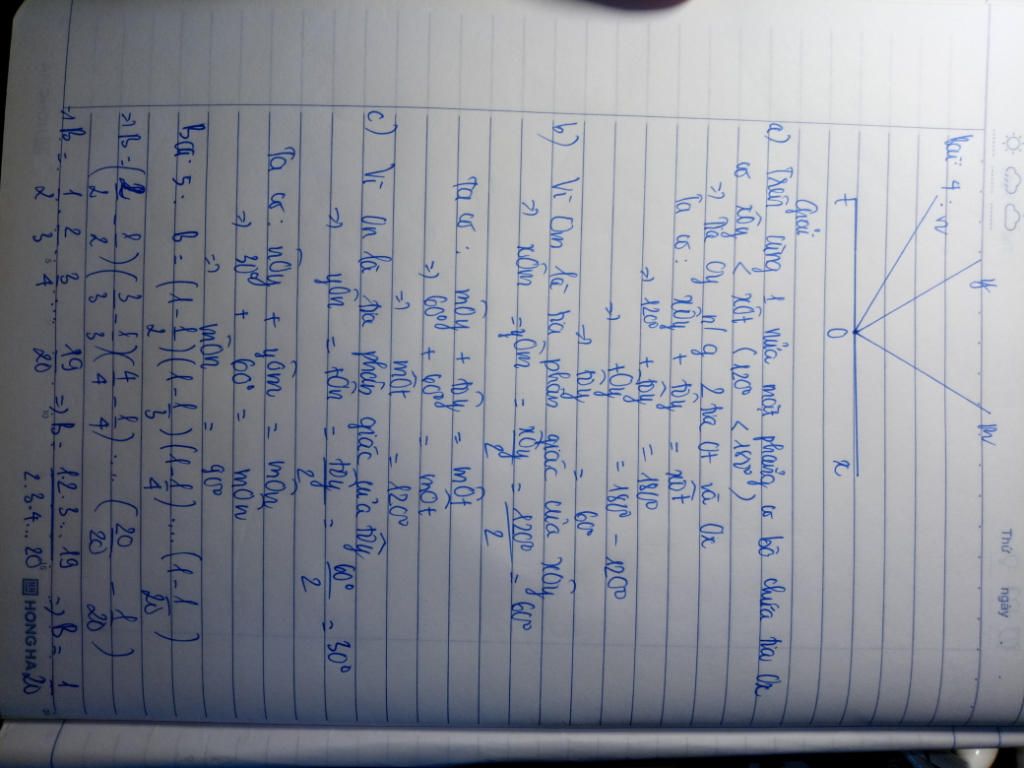 Thứ
Ngày
Bài 4:
n
y
m
t
O
x
Giải
a) Trên cùng 1 nửa mặt phẳng có bờ chứa tia Ox
có xÔy < xÔt (120° < 180°)
=> Tia Oy n/g 2 tia Ot và Ox
Ta có: xÔy + tÔy = xÔt
=> 120° + tÔy = 180°
=> tÔy = 180° - 120°
=> tÔy = 60°
b) Vì Om là tia phân giác của xÔy
=> xÔm = yÔm = xÔy/2 = 120°/2 = 60°
Ta có: mÔy + tÔy = mÔt
=> 60° + 60° = mÔt
=> mÔt = 120°
c) Vì On là tia phân giác của tÔy
=> yÔn = tÔn = tÔy/2 = 60°/2 = 30°
Ta có: nÔy + yÔm = mÔn
=> 30° + 60° = mÔn
=> mÔn = 90°
Bài 5: B = (1-1/2)(1-1/3)(1-1/4)...(1-1/20)
=> B = (2/2 - 1/2)(3/3 - 1/3)(4/4 - 1/4)...(20/20 - 1/20)
=> B = 1/2 . 2/3 . 3/4 ... 19/20 => B = 1.2.3...19/2.3.4...20 => B = 1/20
HONG HA